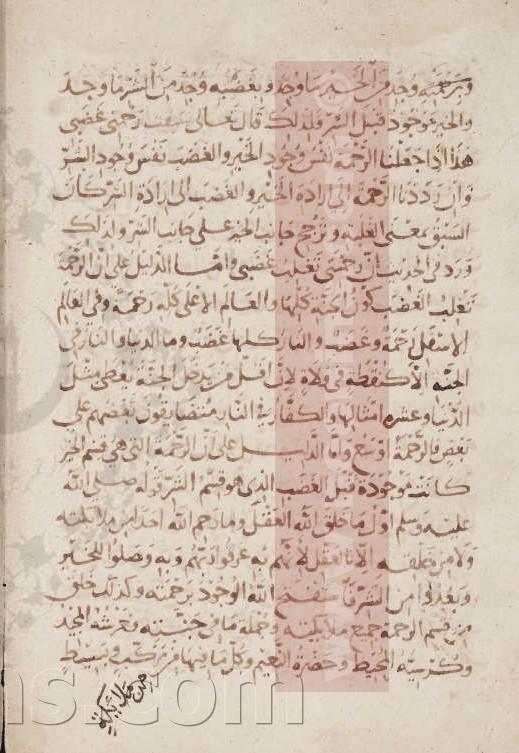 وبرحمته وُجد من الخير ما وجد وبغضبه وُجد من الشر ما وجد
والخير موجود قبل الشر فلذلك قال تعالى سبقت رحمتى غضبى
هذا اذا جعلنا الرحمة نفس وجود الخير والغضب نفس وجود الشر
وان رددنا الرحمة الى ارادة الخير والغضب الى ارادة الشر كان
السبق بمعنى الغلبة وترجح جانب الخير على جانب الشر ولذلك
ورد فى الحديث ان رحمتى تغلب غضبى واما الدليل على ان الرحمة
تغلب الغضب كون الجنة كلها والعالم الاعلى كله رحمة وفى العالم
الاسفل رحمة وغضب والنار كلها غضب وما الدنيا والنار فى
الجنه الا كنقطة فى فلاة لان اقل من يدخل الجنة يعطى مثل
الدنيا وعشرة امثالها والكفار فى النار متضايقون بعضهم على
بعض فالرحمة اوسع واما الدليل على ان الرحمة التى هى قسم الخير
كانت موجودة قبل الغضب الذى هو قسم الشر قوله صلى الله
عليه وسلم اول ما خلق الله العقل وما رحم الله احدا من ملايكته
ولا من خلقه الا بالعقل لانهم به عرفوا ربهم وبه وصلوا للخير
وبعدوا من الشر فاستفتح الله الوجود برحمته وكذلك خلق
من قسم الرحمة جميع ملايكته وحملة ما فى جنته وعرشه المجيد
وكرسيه المحيط وحضرة النعيم وكل ما فيها من مركب وبسيط
من ملايكة
ns.com